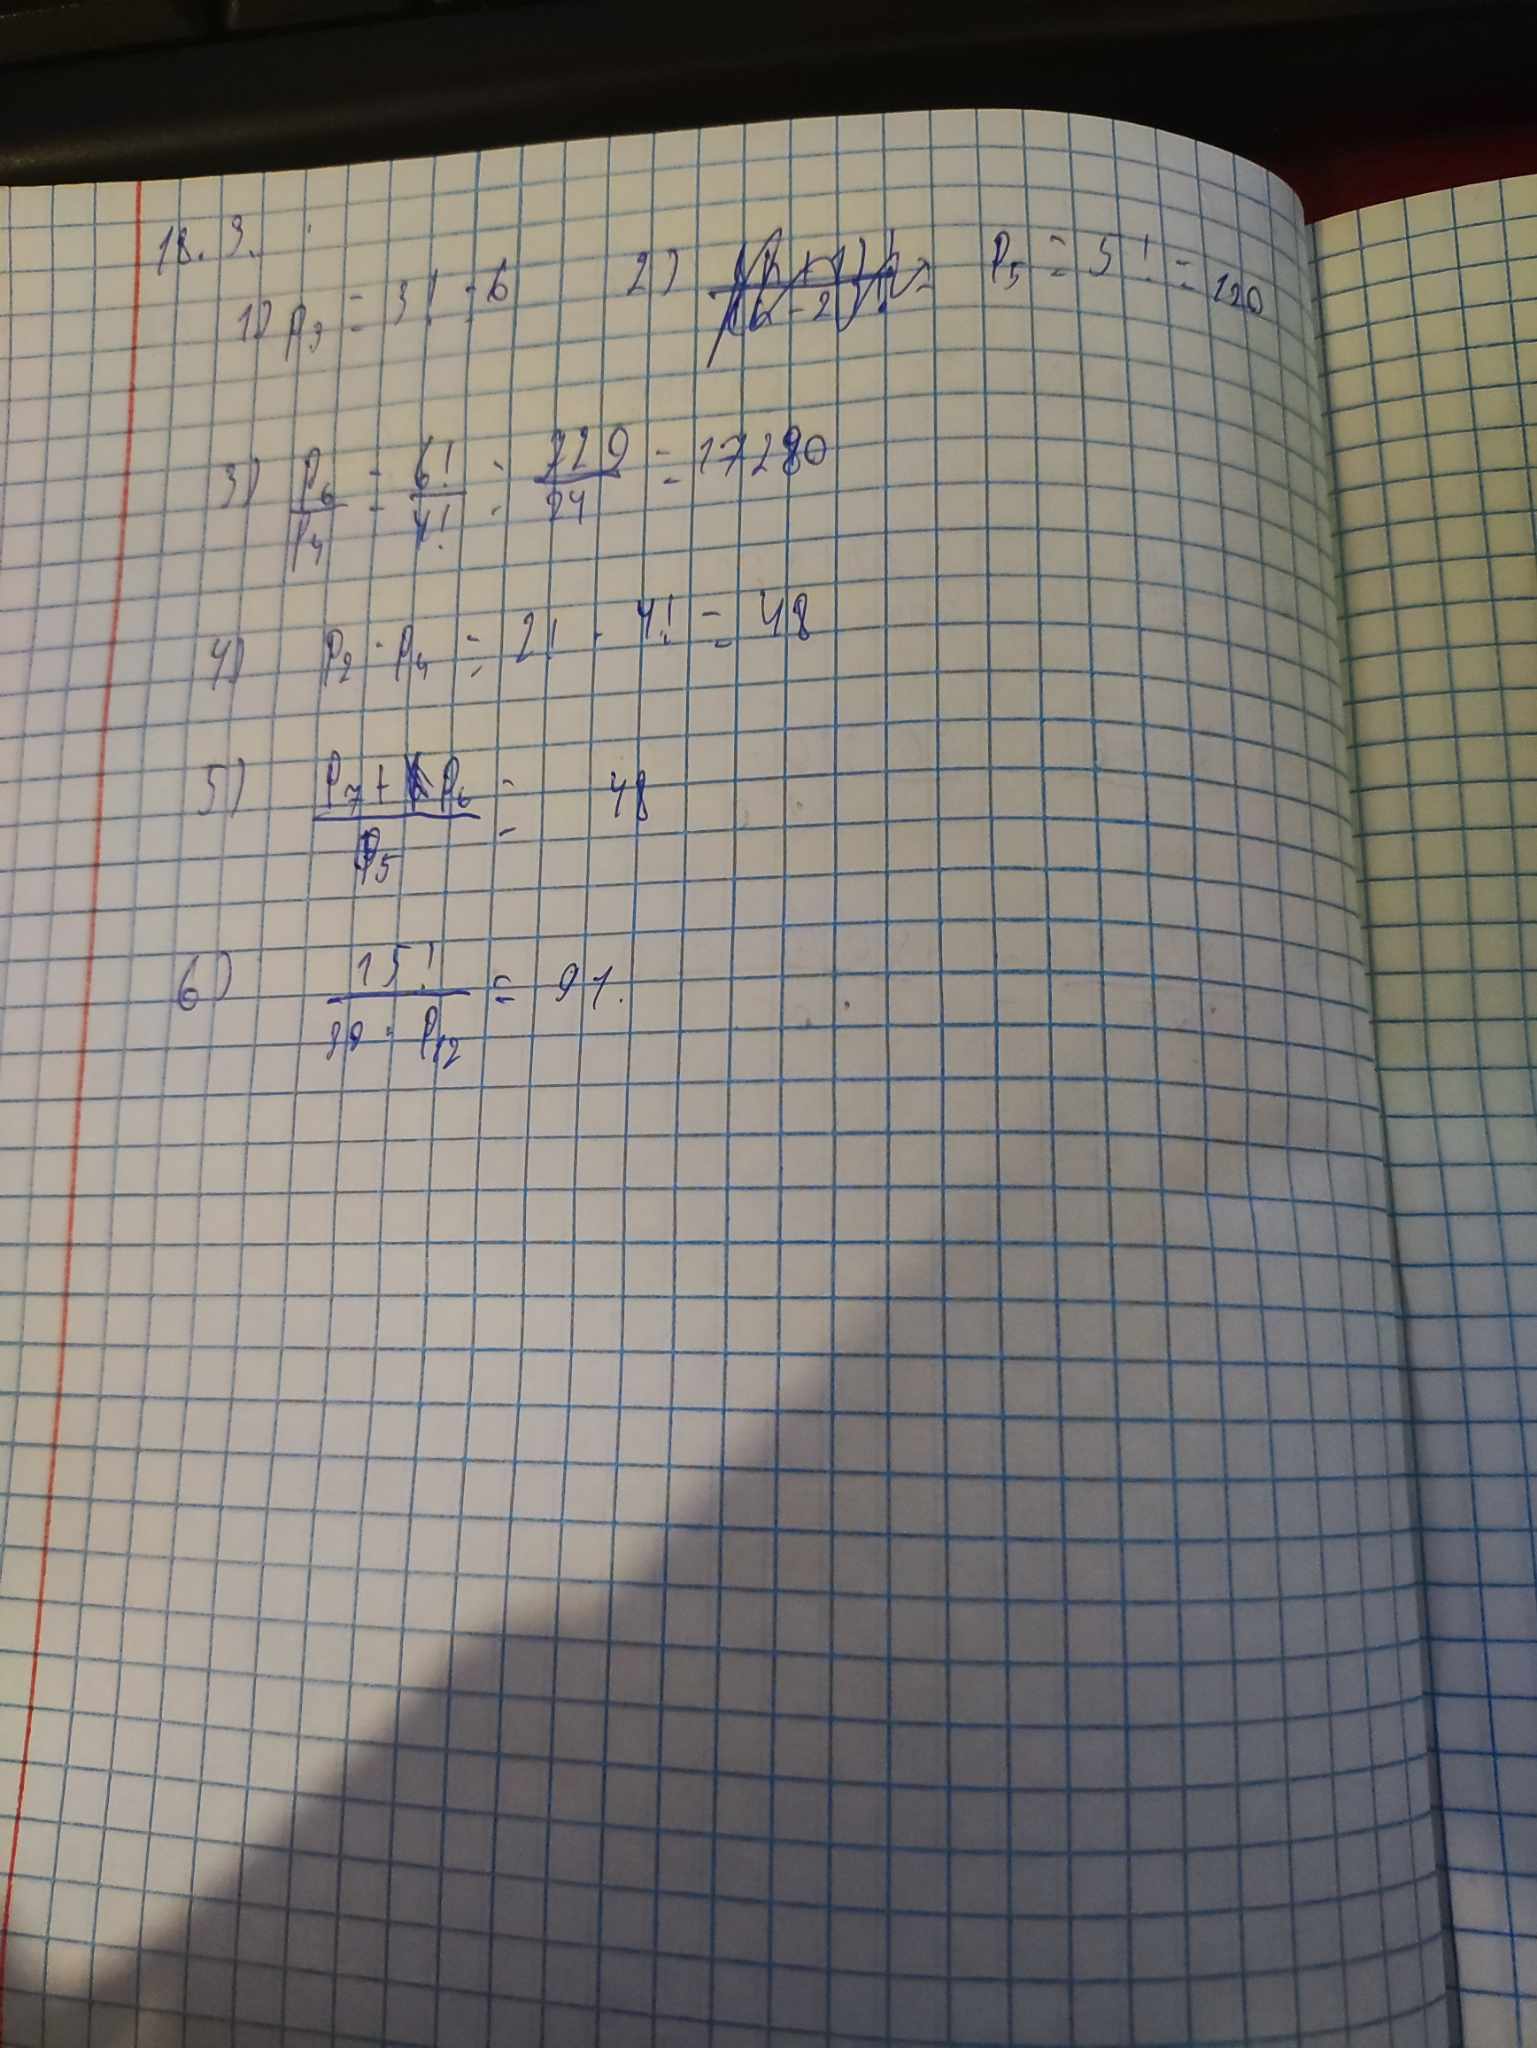 18.3.
1) P₃ = 3! = 6 2) P₅ = 5! = 120
3) P₆/P₄ = 6!/4! = 720/24 = 17280
4) P₂ · P₄ = 2! · 4! = 48
5) (P₇ + P₆)/P₅ = 48
6) 15!/(30 · P₁₂) = 91.